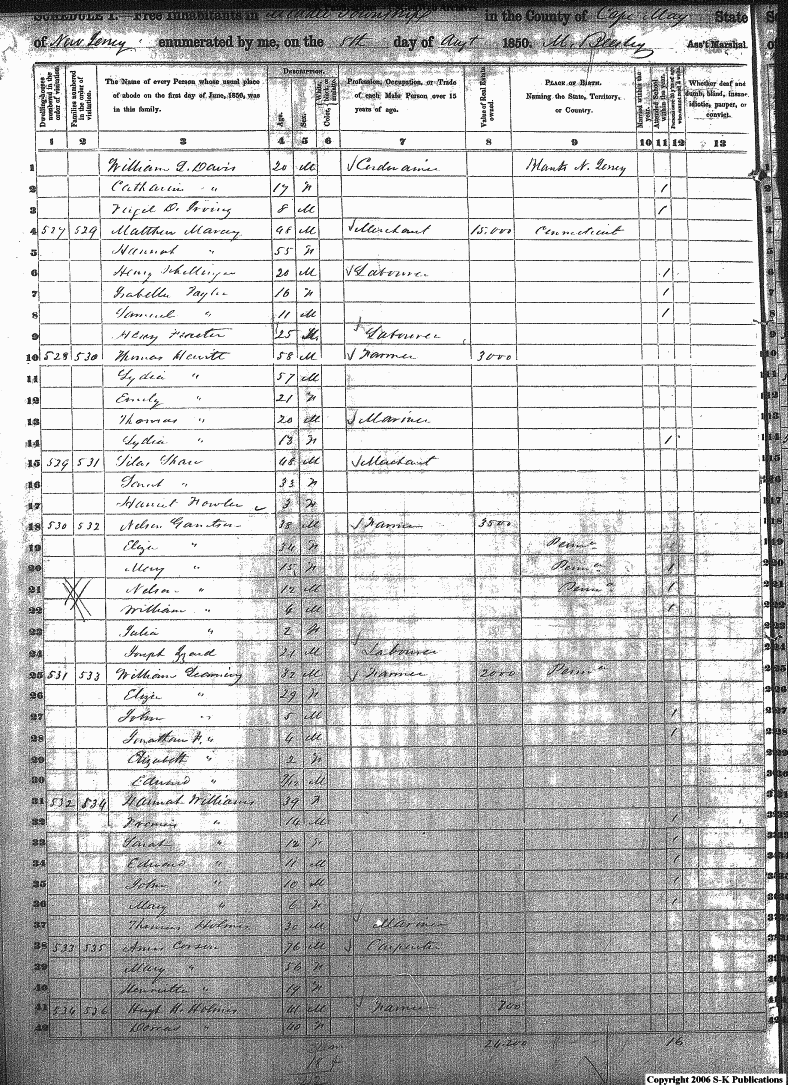 SCHEDULE I. Free Inhabitants in Middle Township in the County of Cape May State
of New Jersey enumerated by me, on the 8th day of Augt 1850. M. Beesley Ass't Marshal.
Dwelling-houses numbered in the order of visitation.
Families numbered in the order of visitation.
The Name of every Person whose usual place of abode on the first day of June, 1850, was in this family.
DESCRIPTION.
Age.
Sex.
White, black, or mulatto.
Color,
Profession, Occupation, or Trade of each Male Person over 15 years of age.
Value of Real Estate owned.
PLACE OF BIRTH. Naming the State, Territory, or Country.
Married within the year.
Attended School within the year.
Whether deaf and dumb, blind, insane, idiotic, pauper, or convict.
1 2 3 4 5 6 7 8 9 10 11 12 13
1 William Davis 20 M Cordwainer N. Jersey
2 Catharine " 17 1
3 Virgil D. Irving 8 M 1
4 527 529 Matthew Marcy 48 M Merchant 15.000 Connecticut
5 Hannah " 55
6 Henry Schellinger 20 M Labourer 1
7 Isabella Taylor 16 1
8 Samuel " 11 M 1
9 Henry 25 Labourer
10 528 530 Thomas Hewitt 58 M Farmer 3000
11 Lydia " 57 M
12 Emily " 21
13 Thomas " 20 M Mariner
14 Lydia " 13 1
15 529 531 Silas 48 M Merchant
16 Sarah " 33
17 Harriet Fowler 3
18 530 532 Nelson Garretson 38 M Farmer 3500
19 Eliza " 34 Penna
20 Mary " 15 Penna 1
21 Nelson " 12 M Penna 1
22 William " 6 M 1
23 Julia " 2
24 Joseph Izard 21 M Labourer
25 531 533 William Leaming 32 M Farmer 2000 Penna
26 Eliza " 29
27 John " 5 M 1
28 Jonathan F. " 4 M 1
29 Elizabeth " 2
30 Edward " /12 M
31 532 534 Hannah Williams 39
32 Francis " 14 M 1
33 Sarah " 12 1
34 Edward " 11 M 1
35 John " 10 M 1
36 Mary " 6 1
37 Thomas Holmes 30 M Mariner
38 533 535 Amos Corson 76 M Carpenter
39 Mary " 56
40 Henrietta " 19
41 534 536 Hugh H. Holmes 41 M Farmer 700
42 Dorcas " 40
24.200 16
Copyright 2006 S-K Publications